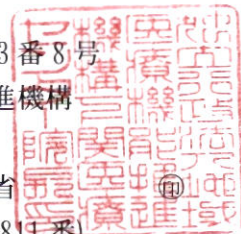 3番8号
進機構
省 ㊞
811番)
独立行政法人地域
医療機能推進
機構下関医療